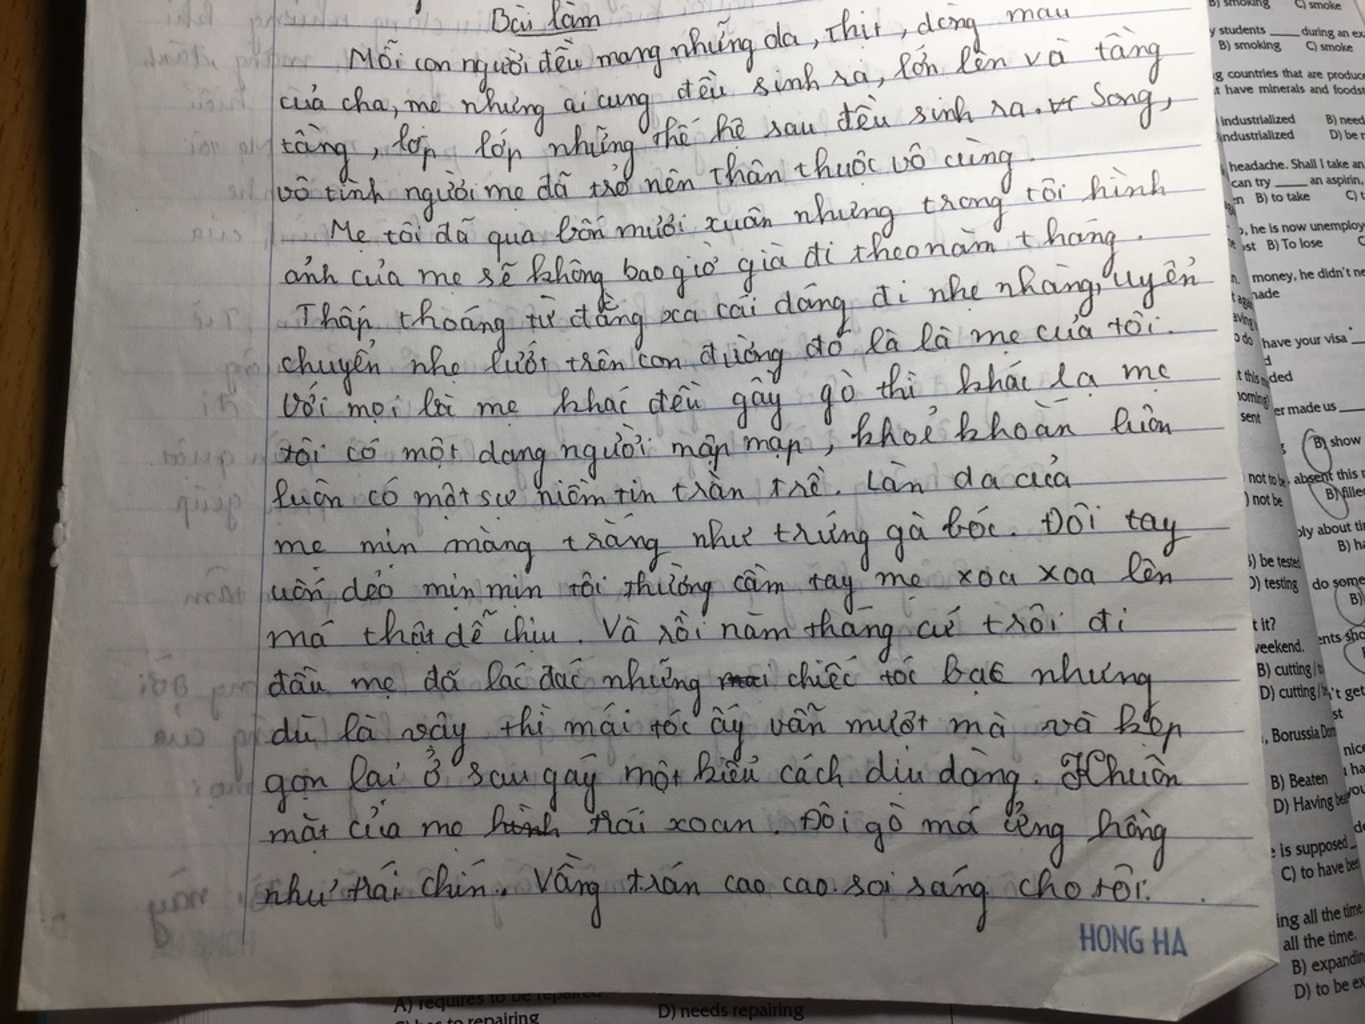 Bài làm
Mỗi con người đều mang những da, thịt, dòng máu
của cha, mẹ nhưng ai cũng đều sinh ra, lớn lên và tầng
tầng, lớp lớp những thế hệ sau đều sinh ra. Song,
vô tình người mẹ đã trở nên thân thuộc vô cùng.
Mẹ tôi đã qua bốn mươi xuân nhưng trong tôi hình
ảnh của mẹ sẽ không bao giờ già đi theo năm tháng.
Thấp thoáng từ đằng xa cái dáng đi nhẹ nhàng, uyển
chuyển nhẹ lướt trên con đường đó là là mẹ của tôi.
Với mọi bà mẹ khác đều gầy gò thì khác lạ mẹ
tôi có một dạng người mập mạp, khoẻ khoắn luôn
luôn có một sự niềm tin tràn trề. Làn da của
mẹ mịn màng trắng như trứng gà bóc. Đôi tay
uốn dẻo mịn mịn tôi thường cầm tay mẹ xoa xoa lên
má thật dễ chịu. Và rồi năm tháng cứ trôi đi
đầu mẹ đã lác đác những chiếc tóc bạc nhưng
dù là vậy thì mái tóc ấy vẫn mượt mà và kẹp
gọn lại ở sau gáy một kiểu cách dịu dàng. Khuôn
mặt của mẹ trái xoan. Đôi gò má ửng hồng
như trái chín. Vầng trán cao cao soi sáng cho tôi.
HONG HA
B) smoking C) smoke
y students ____ during an ex
B) smoking C) smoke
g countries that are produce
t have minerals and foodst
industrialized B) need
industrialized D) be n
headache. Shall I take an
can try ____ an aspirin,
B) to take C) t
, he is now unemploy
B) To lose
money, he didn't ne
have your visa
er made us ____
B) show
absent this
not be B) fille
B) be tested
D) testing do some
t it?
weekend.
B) cutting
D) cutting 't get
, Borussia Dort
B) Beaten
D) Having
e is supposed
C) to have bee
ing all the time
all the time.
B) expandin
D) to be ex
A) requires to be repaired
D) needs repairing
to repairing